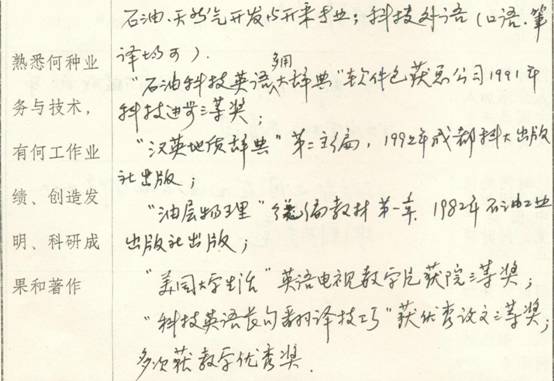 熟悉何种业
务与技术，
有何工作业
绩、创造发
明、科研成
果和著作
石油、天然气开发与开采专业；科技外语（口语、笔
译均可）.
"石油科技英语多用大辞典"软件包获总公司1991年
科技进步三等奖；
"汉英地质辞典"第二主编，1992年成都科大出版
社出版；
"油层物理" 统编教材 第一章 1982年石油工业
出版社出版；
"美国大学生活"英语电视教学片获院三等奖；
"科技英语长句翻译技巧"获优秀论文三等奖；
多次获教学优秀奖.